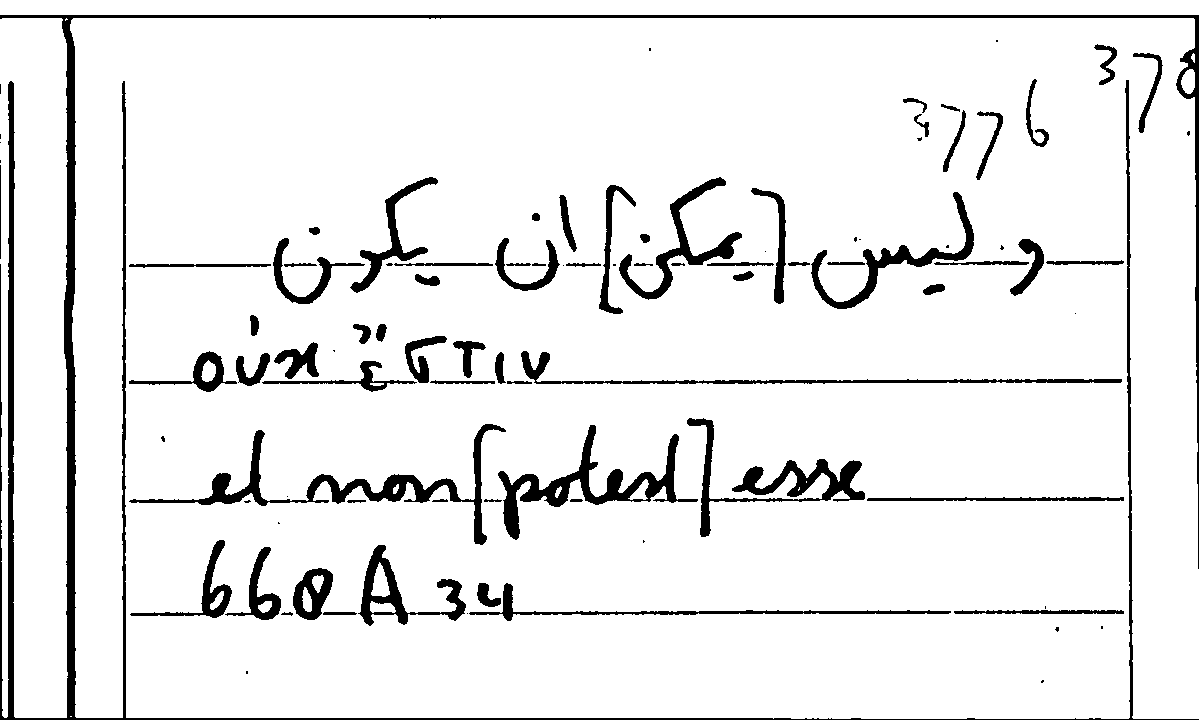 378
3776
وليس [يمكن] ان يكون
οὐκ ἔστιν
et non [potest] esse
668 A 34